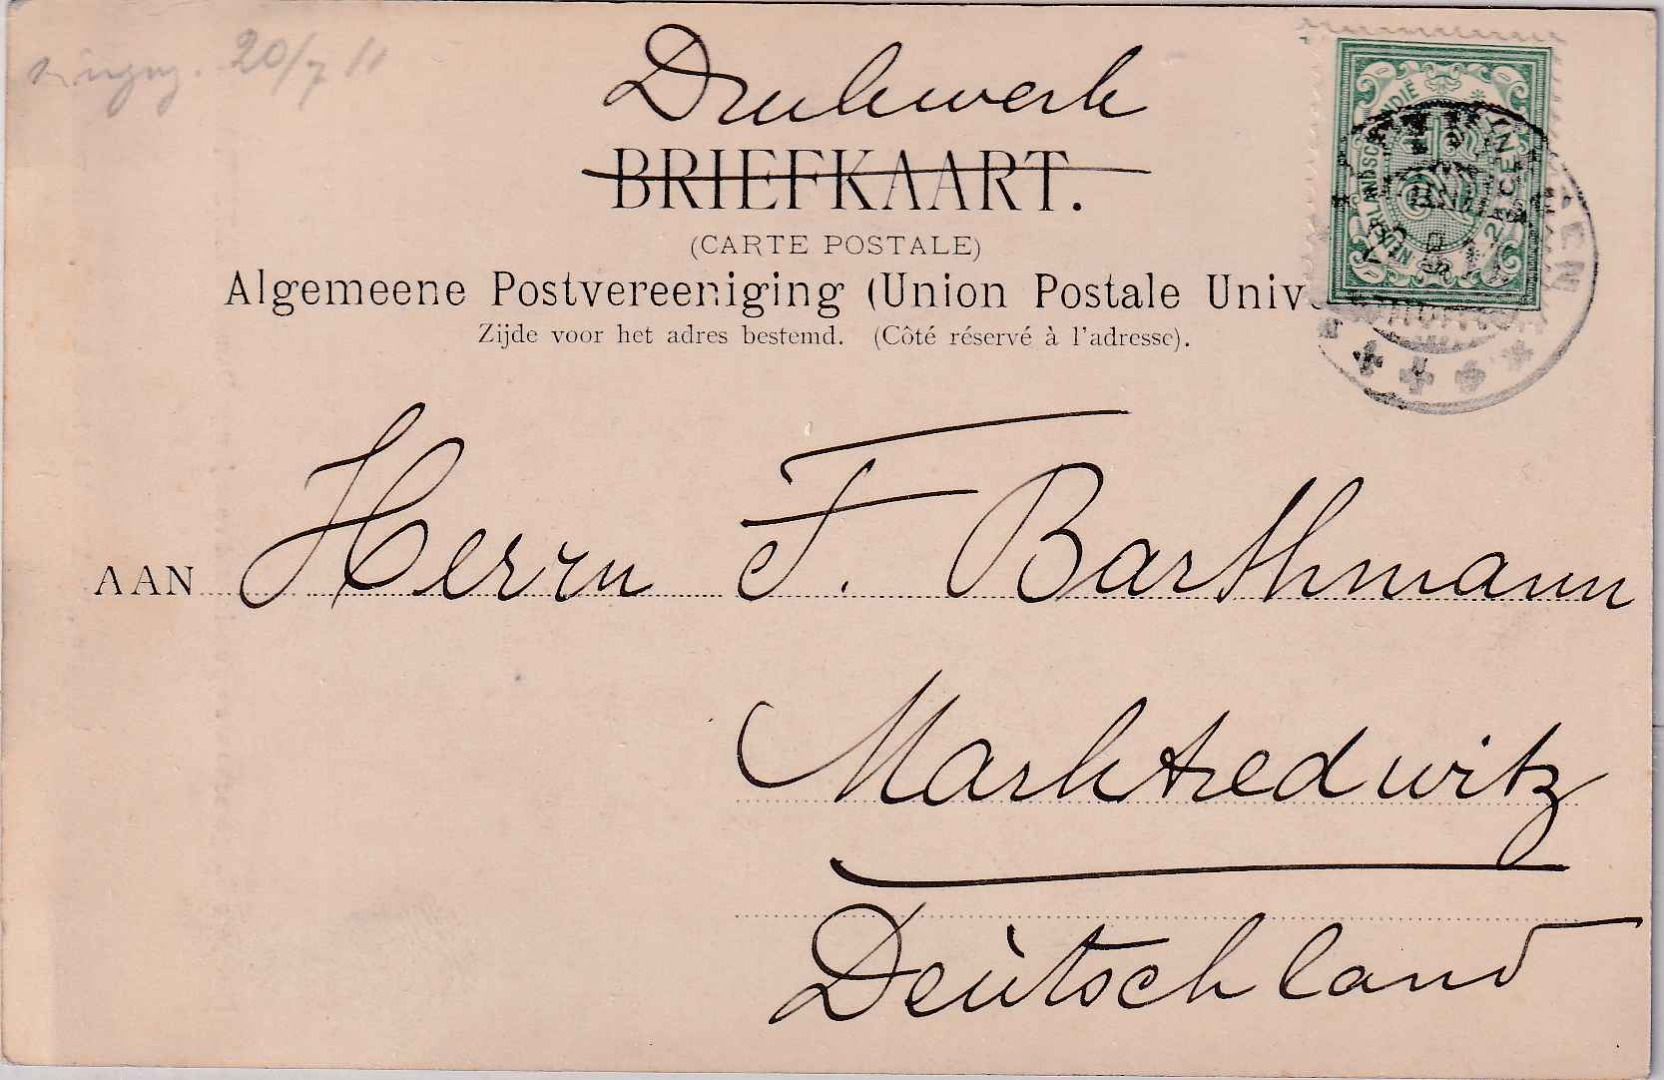 20/7 11
Drukwerk
BRIEFKAART.
(CARTE POSTALE)
Algemeene Postvereeniging (Union Postale Univ
Zijde voor het adres bestemd. (Côté réservé à l'adresse).
NEDERLANDSCH-INDIË
2½ CENT
AAN Herrn F. Barthmann
Marktredwitz
Deutschland